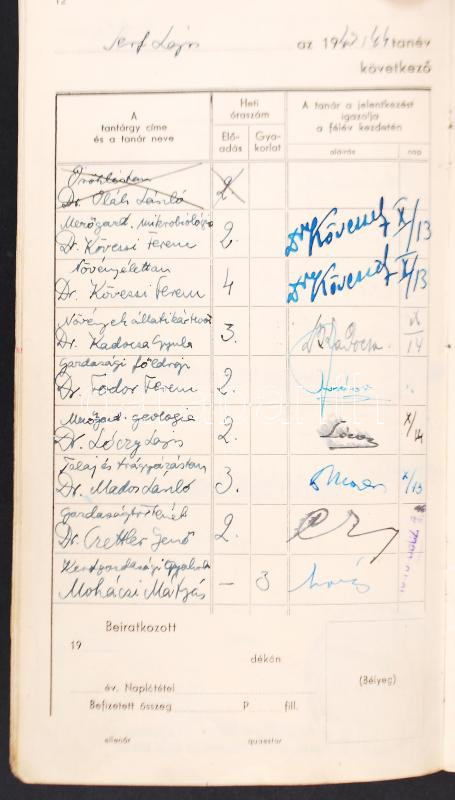 12
Serf Lajos az 1943/44 tanév
következő
A
tantárgy címe
és a tanár neve
Heti
óraszám
Elő-
adás
Gya-
korlat
A tanár a jelentkezést
igazolja
a félév kezdetén
aláírás
nap
Dr. Oláh László 2
Mezőgazd. mikrobiológia
Dr. Kövessi Ferenc 2. Kövessi X/13
Növényélettan
Dr. Kövessi Ferenc 4 Kövessi X/13
Növények állati
Dr. Kadocsa Gyula 3. Kadocsa X/14
Gazdasági földrajz
Dr. Fodor Ferenc 2.
Mezőgazd. geologia
Dr. Lóczy Lajos 2. Lóczy X/14
Talaj és trágyázástan
Dr. Mados László 3. X/13
Gazdaságtörténet
Dr. Czettler Jenő 2.
Mohácsi Mátyás – 3
Beiratkozott
19
dékán
év. Naplótétel
Befizetett összeg P fill.
(Bélyeg)
ellenőr quaestor